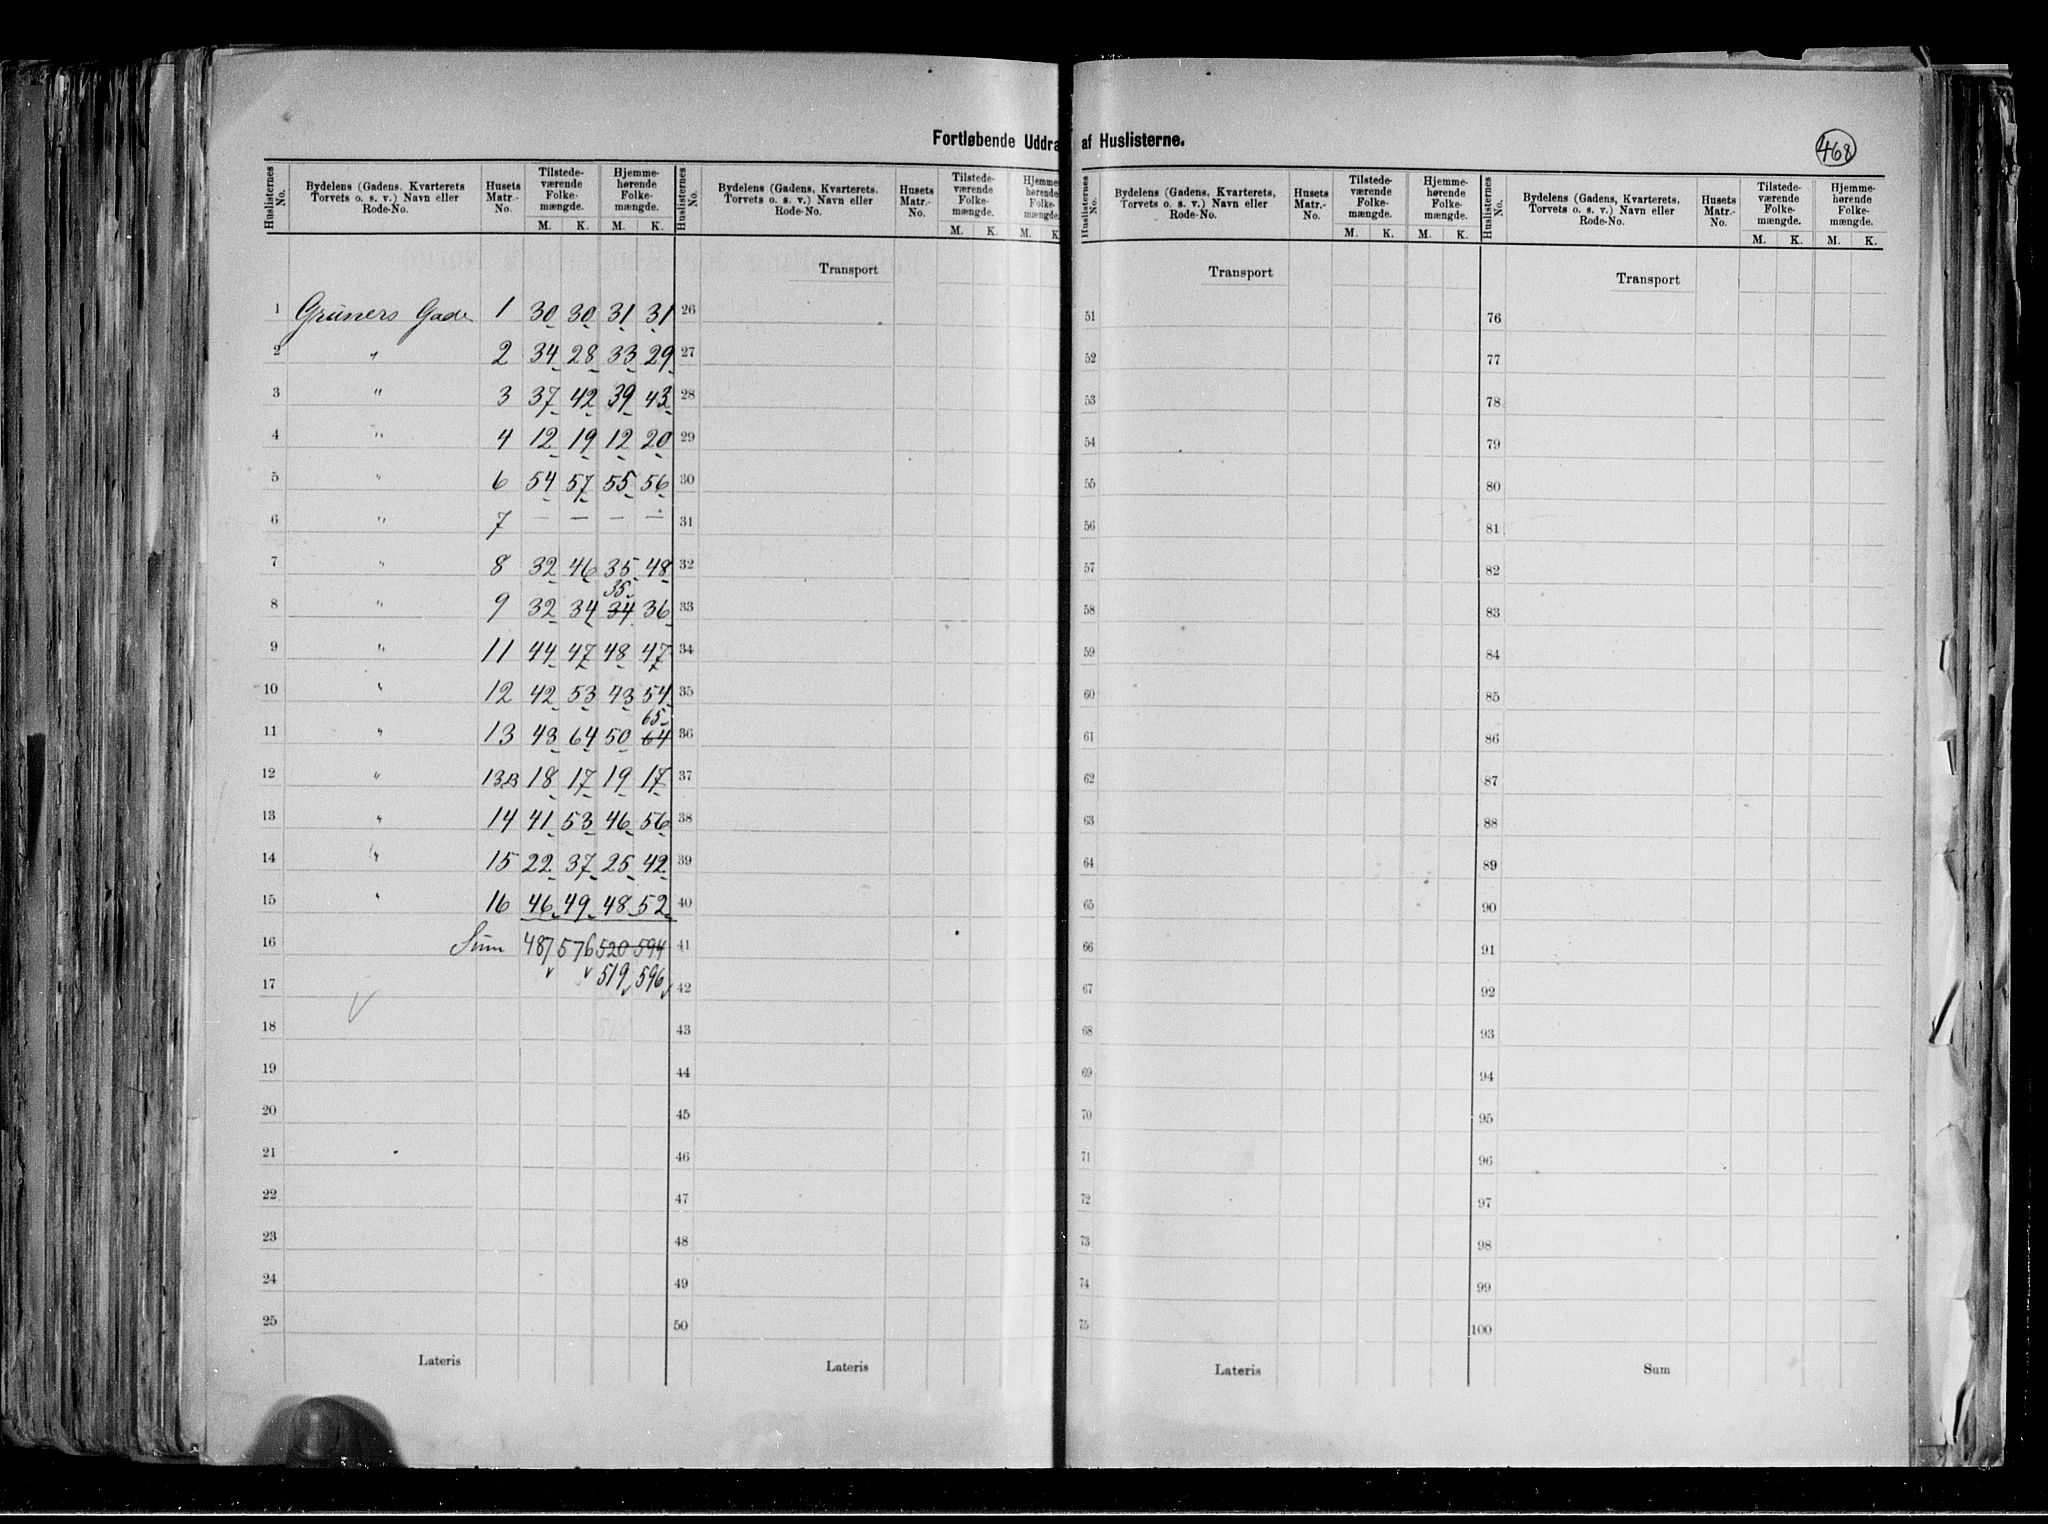 Fortløbende Uddra af Huslisterne.
468
Huslisternes No. Bydelens (Gadens, Kvarterets Torvets o. s. v.) Navn eller Rode-No. Husets Matr.-No. Tilstede-værende Folke-mængde. M. K. Hjemme-hørende Folke-mængde. M. K.
Huslisternes No. Bydelens (Gadens, Kvarterets. Torvets o. s. v.) Navn eller Rode-No. Husets Matr.-No. Tilstede-værende Folke-mængde. M. K. Hjemme-hørende Folke-mængde. M. K
Huslisternes No. Bydelens (Gadens, Kvarterets, Torvets o. s. v.) Navn eller Rode-No. Husets Matr.-No. Tilstede-værende Folke-mængde. M. K. Hjemme-hørende Folke-mængde. M. K.
Huslisternes No. Bydelens (Gadens, Kvarterets, Torvets o. s. v.) Navn eller Rode-No. Husets Matr.-No. Tilstede-værende Folke-mængde. M. K. Hjemme-hørende Folke-mængde. M. K.
Transport Transport Transport
1 Grüners Gade 1 30 30 31 31 26 51 76
2 " 2 34 28 33 29 27 52 77
3 " 3 37 42 39 43 28 53 78
4 " 4 12 19 12 20 29 54 79
5 " 6 54 57 55 56 30 55 80
6 " 7 — — — — 31 56 81
7 " 8 32 46 35 48 32 57 82
35
8 " 9 32 34 34 36 33 58 83
9 " 11 44 47 48 47 34 59 84
10 " 12 42 53 43 54 35 60 85
65
11 " 13 43 64 50 64 36 61 86
12 " 13B 18 17 19 17 37 62 87
13 " 14 41 53 46 56 38 63 88
14 " 15 22 37 25 42 39 64 89
15 " 16 46 49 48 52 40 65 90
16 Sum 487 576 520 594 41 66 91
519 596
17 42 67 92
18 43 68 93
19 44 69 94
20 45 70 95
21 46 71 96
22 47 72 97
23 48 73 98
24 49 74 99
25 50 75 100
Lateris Lateris Lateris Sum